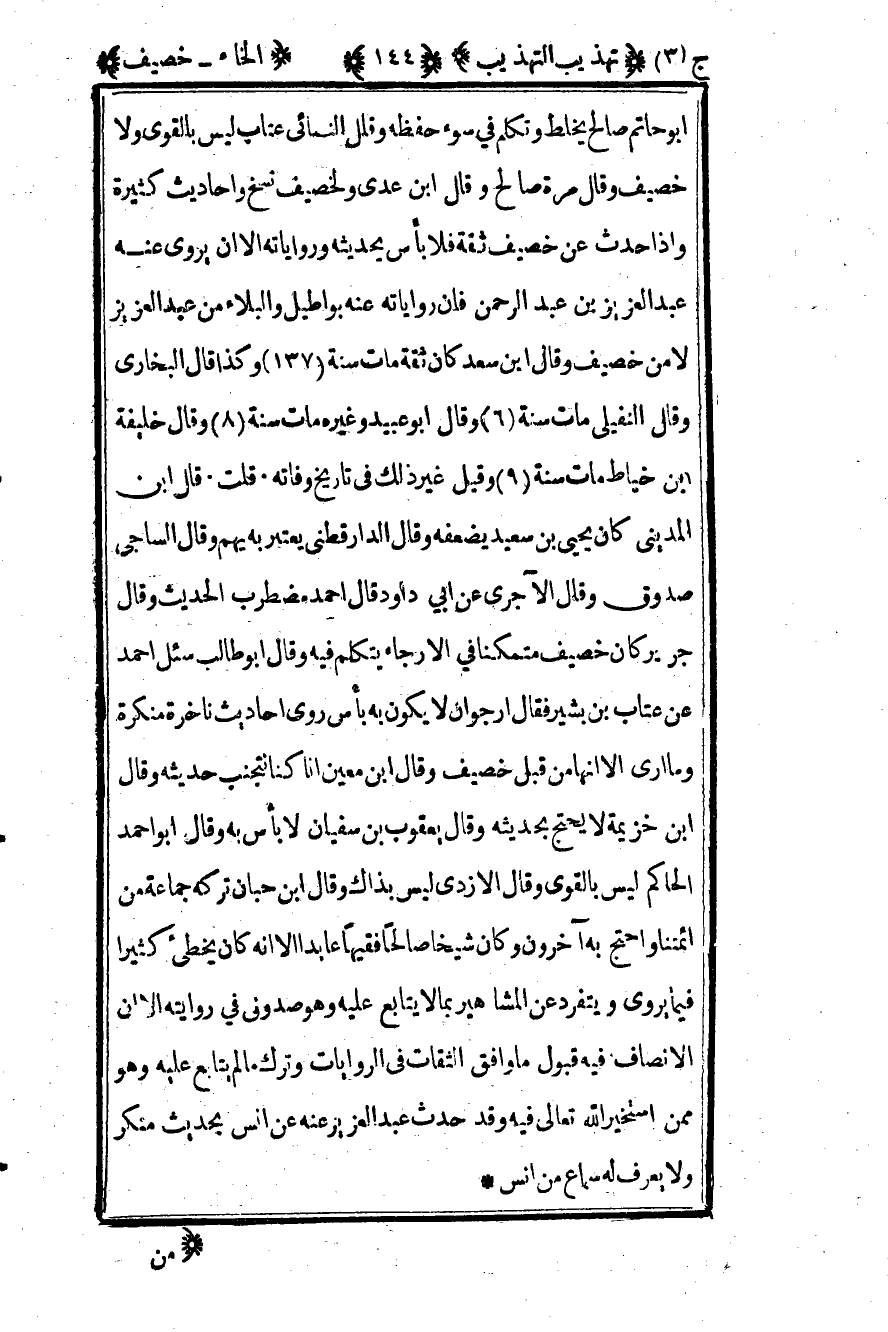 ج (٣) ﴿ تهذيب التهذيب ﴾ ﴿ ١٤٤ ﴾ ﴿ الخاء ـ خصيف ﴾
ابوحاتم صالح يخلط و تكلم في سوء حفظه وقال النسائى عتاب ليس بالقوى ولا
خصيف وقال مرة صالح و قال ابن عدى ولخصيف نسخ واحاديث كثيرة
واذا حدث عن خصيف ثقة فلا بأس بحديثه ورواياته الا ان يروى عنـه
عبدالعزيز بن عبد الرحمن فان رواياته عنه بواطيل والبلاء من عبدالعزيز
لا من خصيف وقال ابن سعد كان ثقة مات سنة (١٣٧) وكذا قال البخارى
وقال النفيلى مات سنة (٦) وقال ابوعبيد وغيره مات سنة (٨) وقال خليفة
ابن خياط مات سنة (٩) وقيل غير ذلك فى تاريخ وفاته ٠ قلت ٠ قال ابن
المدينى كان يحيى بن سعيد يضعفه وقال الدارقطنى يعتبر به يهم وقال الساجى
صدوق وقال الآجرى عن ابي داود قال احمد مضطرب الحديث وقال
جرير كان خصيف متمكنا في الارجاء يتكلم فيه وقال ابوطالب سئل احمد
عن عتاب بن بشير فقال ارجو ان لا يكون به بأس روى احاديث ناخرة منكرة
وما ارى الا انها من قبل خصيف وقال ابن معين انا كنا نتجنب حديثه وقال
ابن خزيمة لا يحتج بحديثه وقال يعقوب بن سفيان لا بأس به وقال ابو احمد
الحاكم ليس بالقوى وقال الازدى ليس بذاك وقال ابن حبان تركه جماعة من
ائمتنا واحتج به آخرون وكان شيخا صالحاً فقيهاً عابدا الا انه كان يخطئ كثيرا
فيما يروى و يتفرد عن المشاهير بما لا يتابع عليه وهو صدوق في روايته الا ان
الانصاف فيه قبول ما وافق الثقات فى الروايات وترك ما لم يتابع عليه وهو
ممن استخير الله تعالى فيه وقد حدث عبدالعزيز عنه عن انس بحديث منكر
ولا يعرف له سماع من انس *
﴿ من